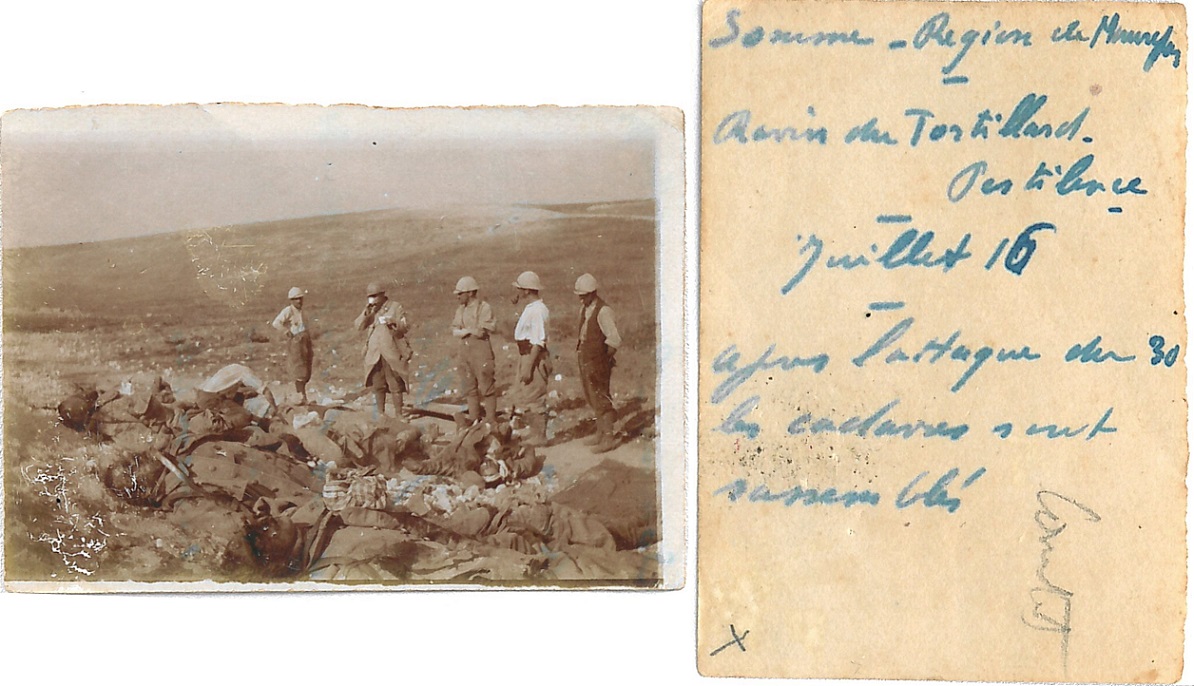 Somme - Region de Maurepas
Ravin du Tortillard.
Pestilence
Juillet 16
après l'attaque du 30
les cadavres sont
rassemblés
X